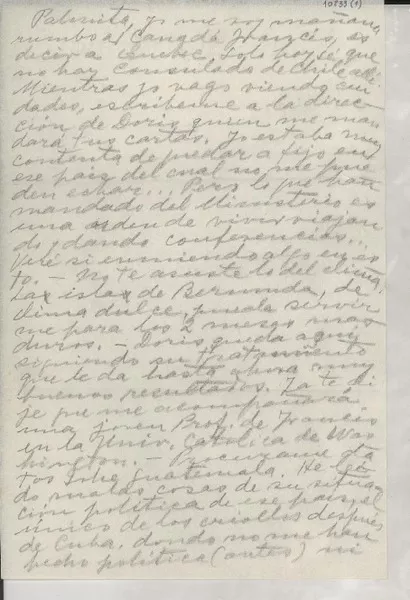 10833 (1)
Palmita, yo me voy mañana
rumbo al Canadá francés, es
decir a Quebec. Solo hoy sé que
no hay Consulado de Chile allí.
Mientras yo vago viendo ciu-
dades, escríbeme a la direc-
ción de Doris quien me man-
dará tus cartas. Yo estaba muy
contenta de quedar a fijo en
ese país del cual no me pue-
den echar... Pero lo que han
mandado del Ministerio es
una orden de vivir viajan-
do y dando conferencias...
Veré si enmiendo algo en es-
to. - No te asuste lo del clima.
Las islas de Bermuda, de
clima dulce, puede servir
me para los 2 meses más
duros. - Doris queda aquí
siguiendo su tratamiento
que le da hasta ahora muy
buenos resultados. Ya te di-
je que me acompañará
una joven Prof. de Francés
en la Univ. Católica de Was
hington. - Procúrame da
tos sobre Guatemala. He leí-
do malas cosas de su situa-
ción política de ese país, el
único de los criollos después
de Cuba, donde no me han
hecho política (antes) ni